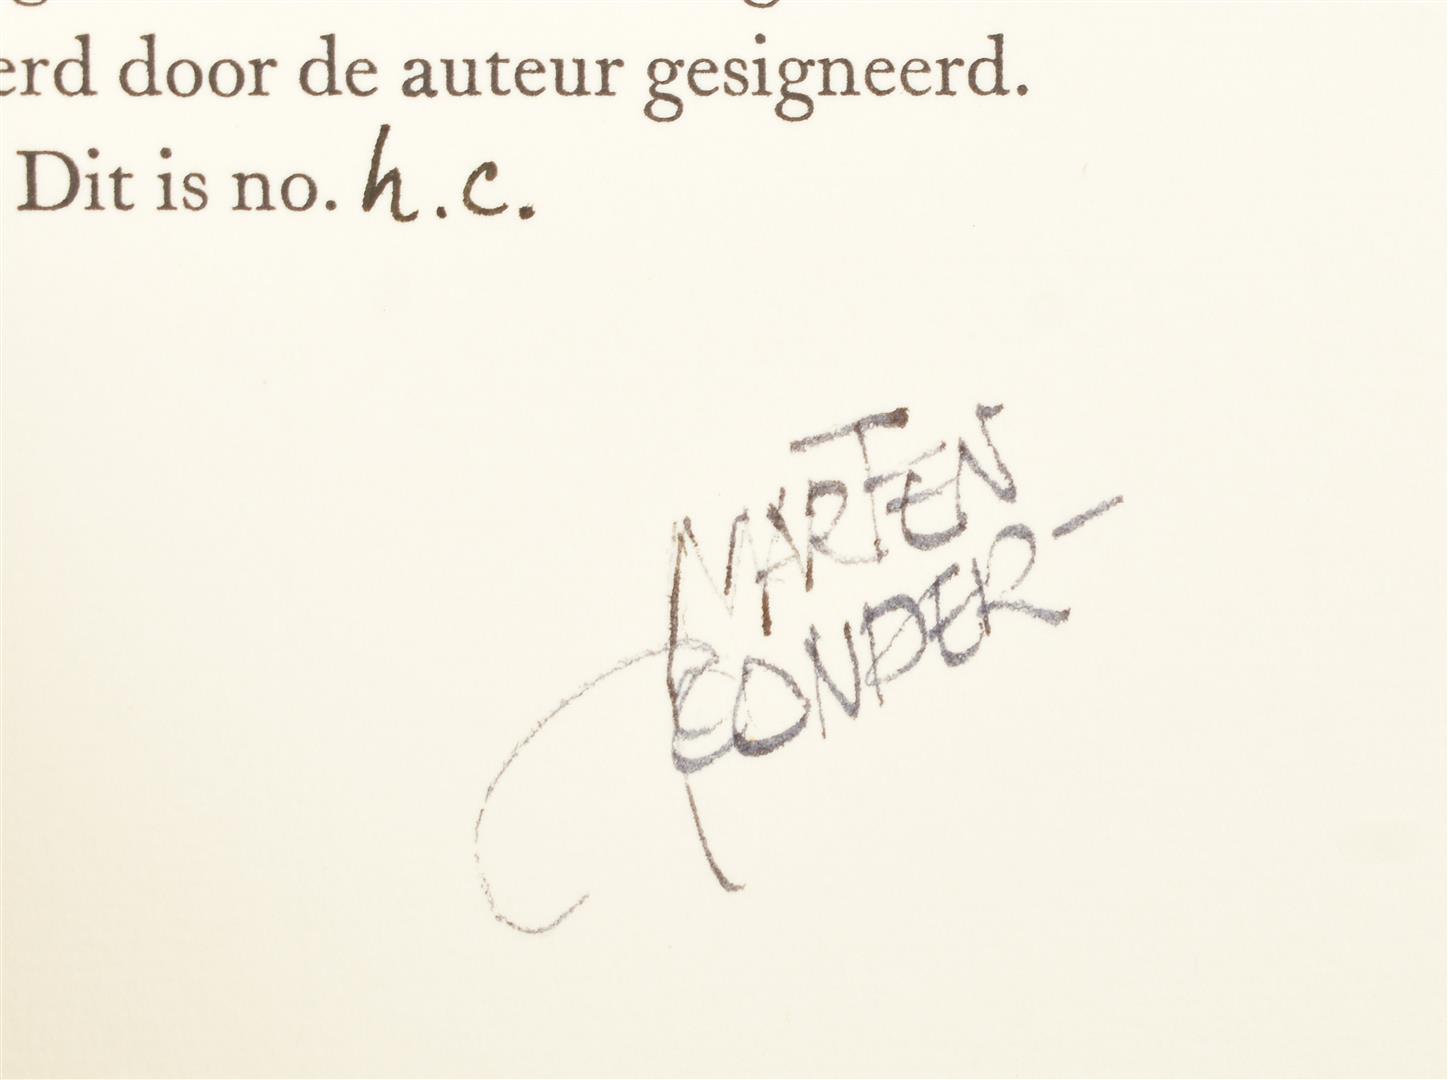 erd door de auteur gesigneerd.
Dit is no. h.c.
MARTEN